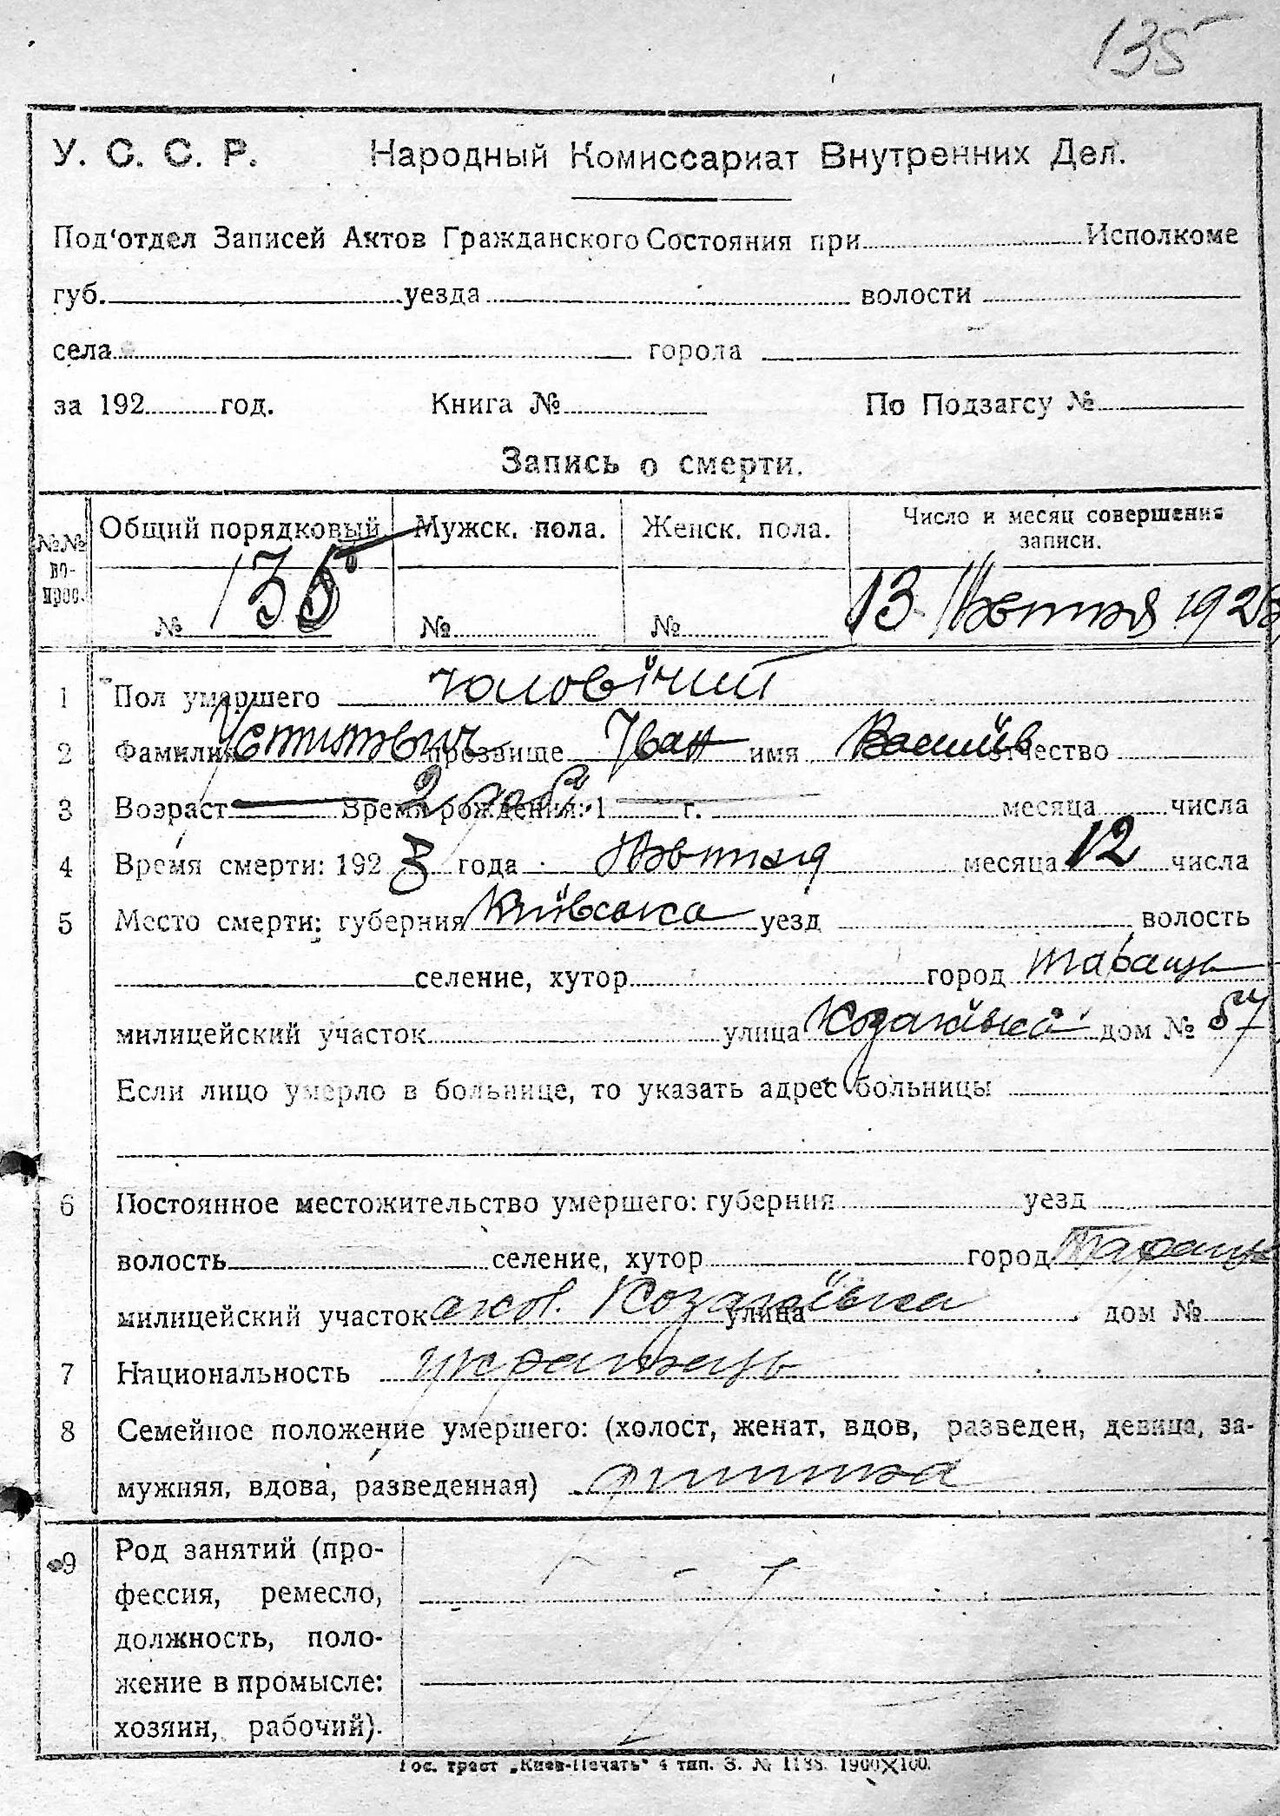 135
У. С. С. Р. Народный Комиссариат Внутренних Дел.
Под'отдел Записей Актов Гражданского Состояния при Исполкоме
губ. уезда волости
села города
за 192 год. Книга № По Подзагсу №
Запись о смерти.
№№ вопрос. Общий порядковый Мужск. пола. Женск. пола. Число и месяц совершения записи.
№ 135 № № 13 Жовтня 192
1 Пол умершего чоловічий
2 Фамилия Устимович прозвище Іван имя Василів отчество
3 Возраст Время рождения: 1 г. 2 месяца числа
4 Время смерти: 1923 года Жовтня месяца 12 числа
5 Место смерти: губерния Київська уезд волость
селение, хутор город Тараща
милицейский участок улица Козаківка дом № 57
Если лицо умерло в больнице, то указать адрес больницы
6 Постоянное местожительство умершего: губерния уезд
волость селение, хутор город Тараща
милицейский участок Козаківка улица дом №
7 Национальность українець
8 Семейное положение умершего: (холост, женат, вдов, разведен, девица, за-
мужняя, вдова, разведенная) дитина
9 Род занятий (про-
фессия, ремесло,
должность, поло-
жение в промысле:
хозяин, рабочий).
Гос. трест „Киев-Печать" 4 тип. З. № 1188. 1900×100.